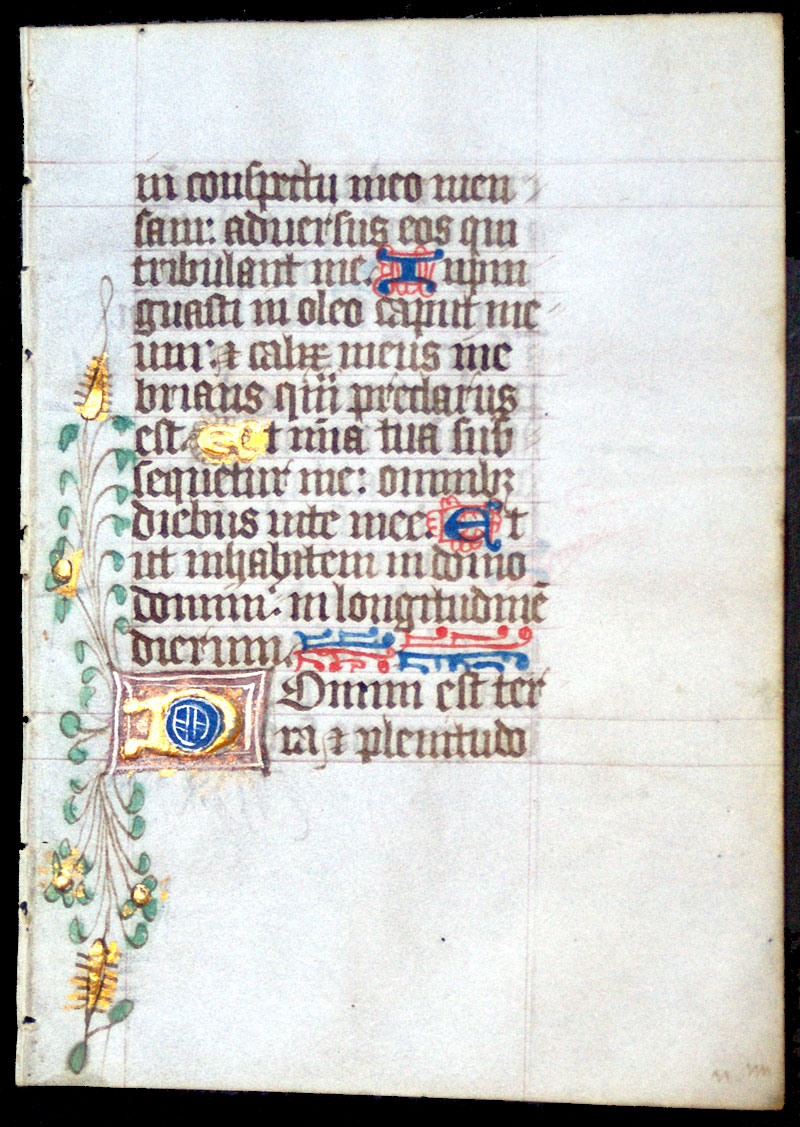 in conspectu meo men
sam: aduersus eos qui
tribulant me. Inpin
guasti in oleo caput me
um: ⁊ calix meus ine
brians quā preclarus
est. Et mīa tua sub
sequetur me: omnibꝫ
diebus uite mee. Et
ut inhabitem in domo
domini: in longitudinē
dierum.
Domini est ter
ra ⁊ plenitudo